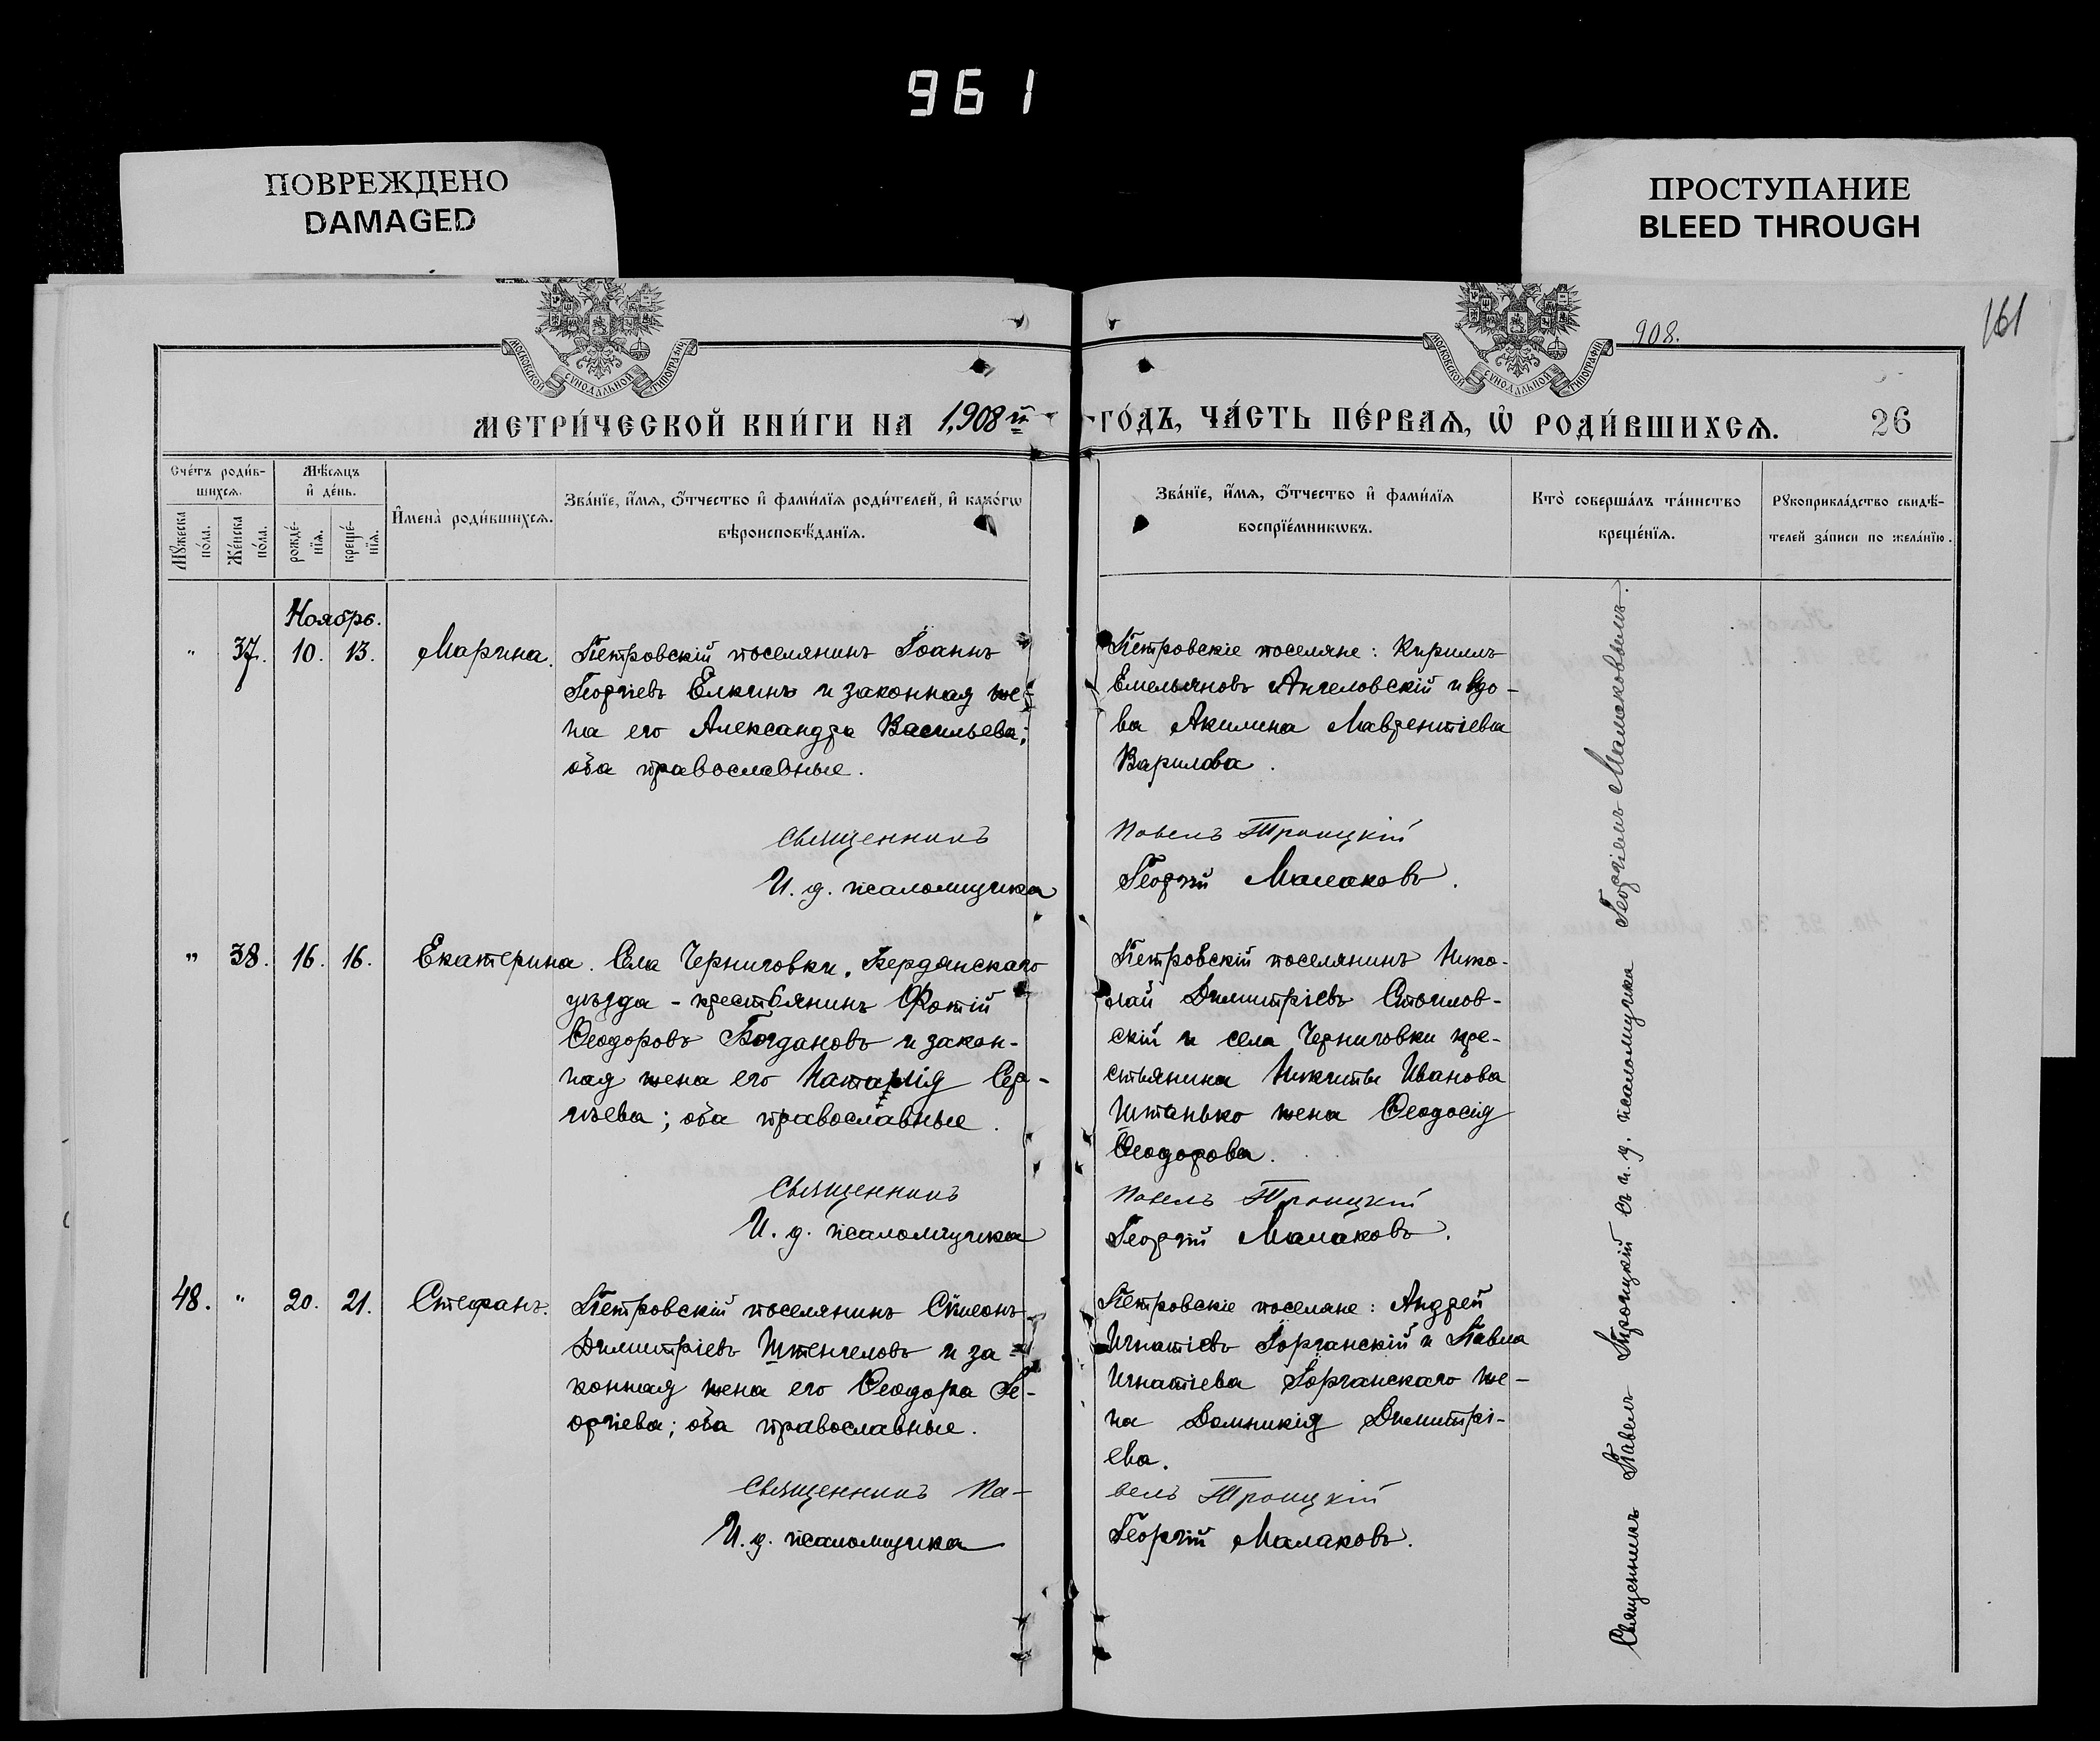 961
ПОВРЕЖДЕНО
DAMAGED
ПРОСТУПАНИЕ
BLEED THROUGH
161
908.
МОСКОВСКОЙ СѴНОДАЛЬНОЙ ТИПОГРАФІИ
МОСКОВСКОЙ СѴНОДАЛЬНОЙ ТИПОГРАФІИ
МЕТРИ́ЧЕСКОЙ КНИ́ГИ НА 1,908й
ГО́ДЪ, ЧА́СТЬ ПЕ́РВАѦ, Ѡ҆ РОДИ́ВШИХСѦ. 26
Сче́тъ роди́вшихсѧ.
Мꙋ́жеска по́ла.
Же́нска по́ла.
Мѣ́сѧцъ и҆ де́нь.
рожде́нїѧ.
креще́нїѧ.
И҆мена̀ роди́вшихсѧ.
Зва́нїе, и҆́мѧ, ѻ҆́тчество и҆ фами́лїѧ роди́телей, и҆ како́гѡ
вѣроисповѣ́данїѧ.
Зва́нїе, и҆́мѧ, ѻ҆́тчество и҆ фами́лїѧ
воспрїе́мникѡвъ.
Кто̀ соверша́лъ та́инство
креще́нїѧ.
Рꙋкоприкла́дство свидѣ́-
телей за́писи по жела́нїю.
Ноябрь.
" 37. 10. 13. Марина.
Петровскій поселянинъ Іоаннъ
Георгіевъ Елкинъ и законная же-
на его Александра Васильева;
оба православные.
Священникъ
И. д. псаломщика
Петровскіе поселяне: Кириллъ
Емельяновъ Ангеловскій и вдо-
ва Акилина Лаврентіева
Варилова.
Павелъ Троицкій
Георгій Малаковъ.
" 38. 16. 16. Екатерина.
Села Черниговки, Бердянскаго
уѣзда - крестьянинъ Фотій
Ѳеодоровъ Богдановъ и закон-
ная жена его Наталія Сер-
гѣева; оба православные.
Священникъ
И. д. псаломщика
Петровскій поселянинъ Нико-
лай Димитріевъ Стоилов-
скій и села Черниговки кре-
стьянина Никиты Иванова
Штанько жена Ѳеодосія
Ѳеодорова.
Павелъ Троицкій
Георгій Малаковъ.
48. " 20. 21. Стефанъ.
Петровскій поселянинъ Сѵмеонъ
Димитріевъ Штенгеловъ и за-
конная жена его Ѳеодора Ге-
оргіева; оба православные.
Священникъ Па-
И. д. псаломщика
Петровскіе поселяне: Андрей
Игнатіевъ Горганскій и Павла
Игнатіева Горганскаго же-
на Домникія Димитрі-
ева.
велъ Троицкій
Георгій Малаковъ.
Священникъ Павелъ Троицкій съ и. д. псаломщика Георгіемъ Малаковымъ.